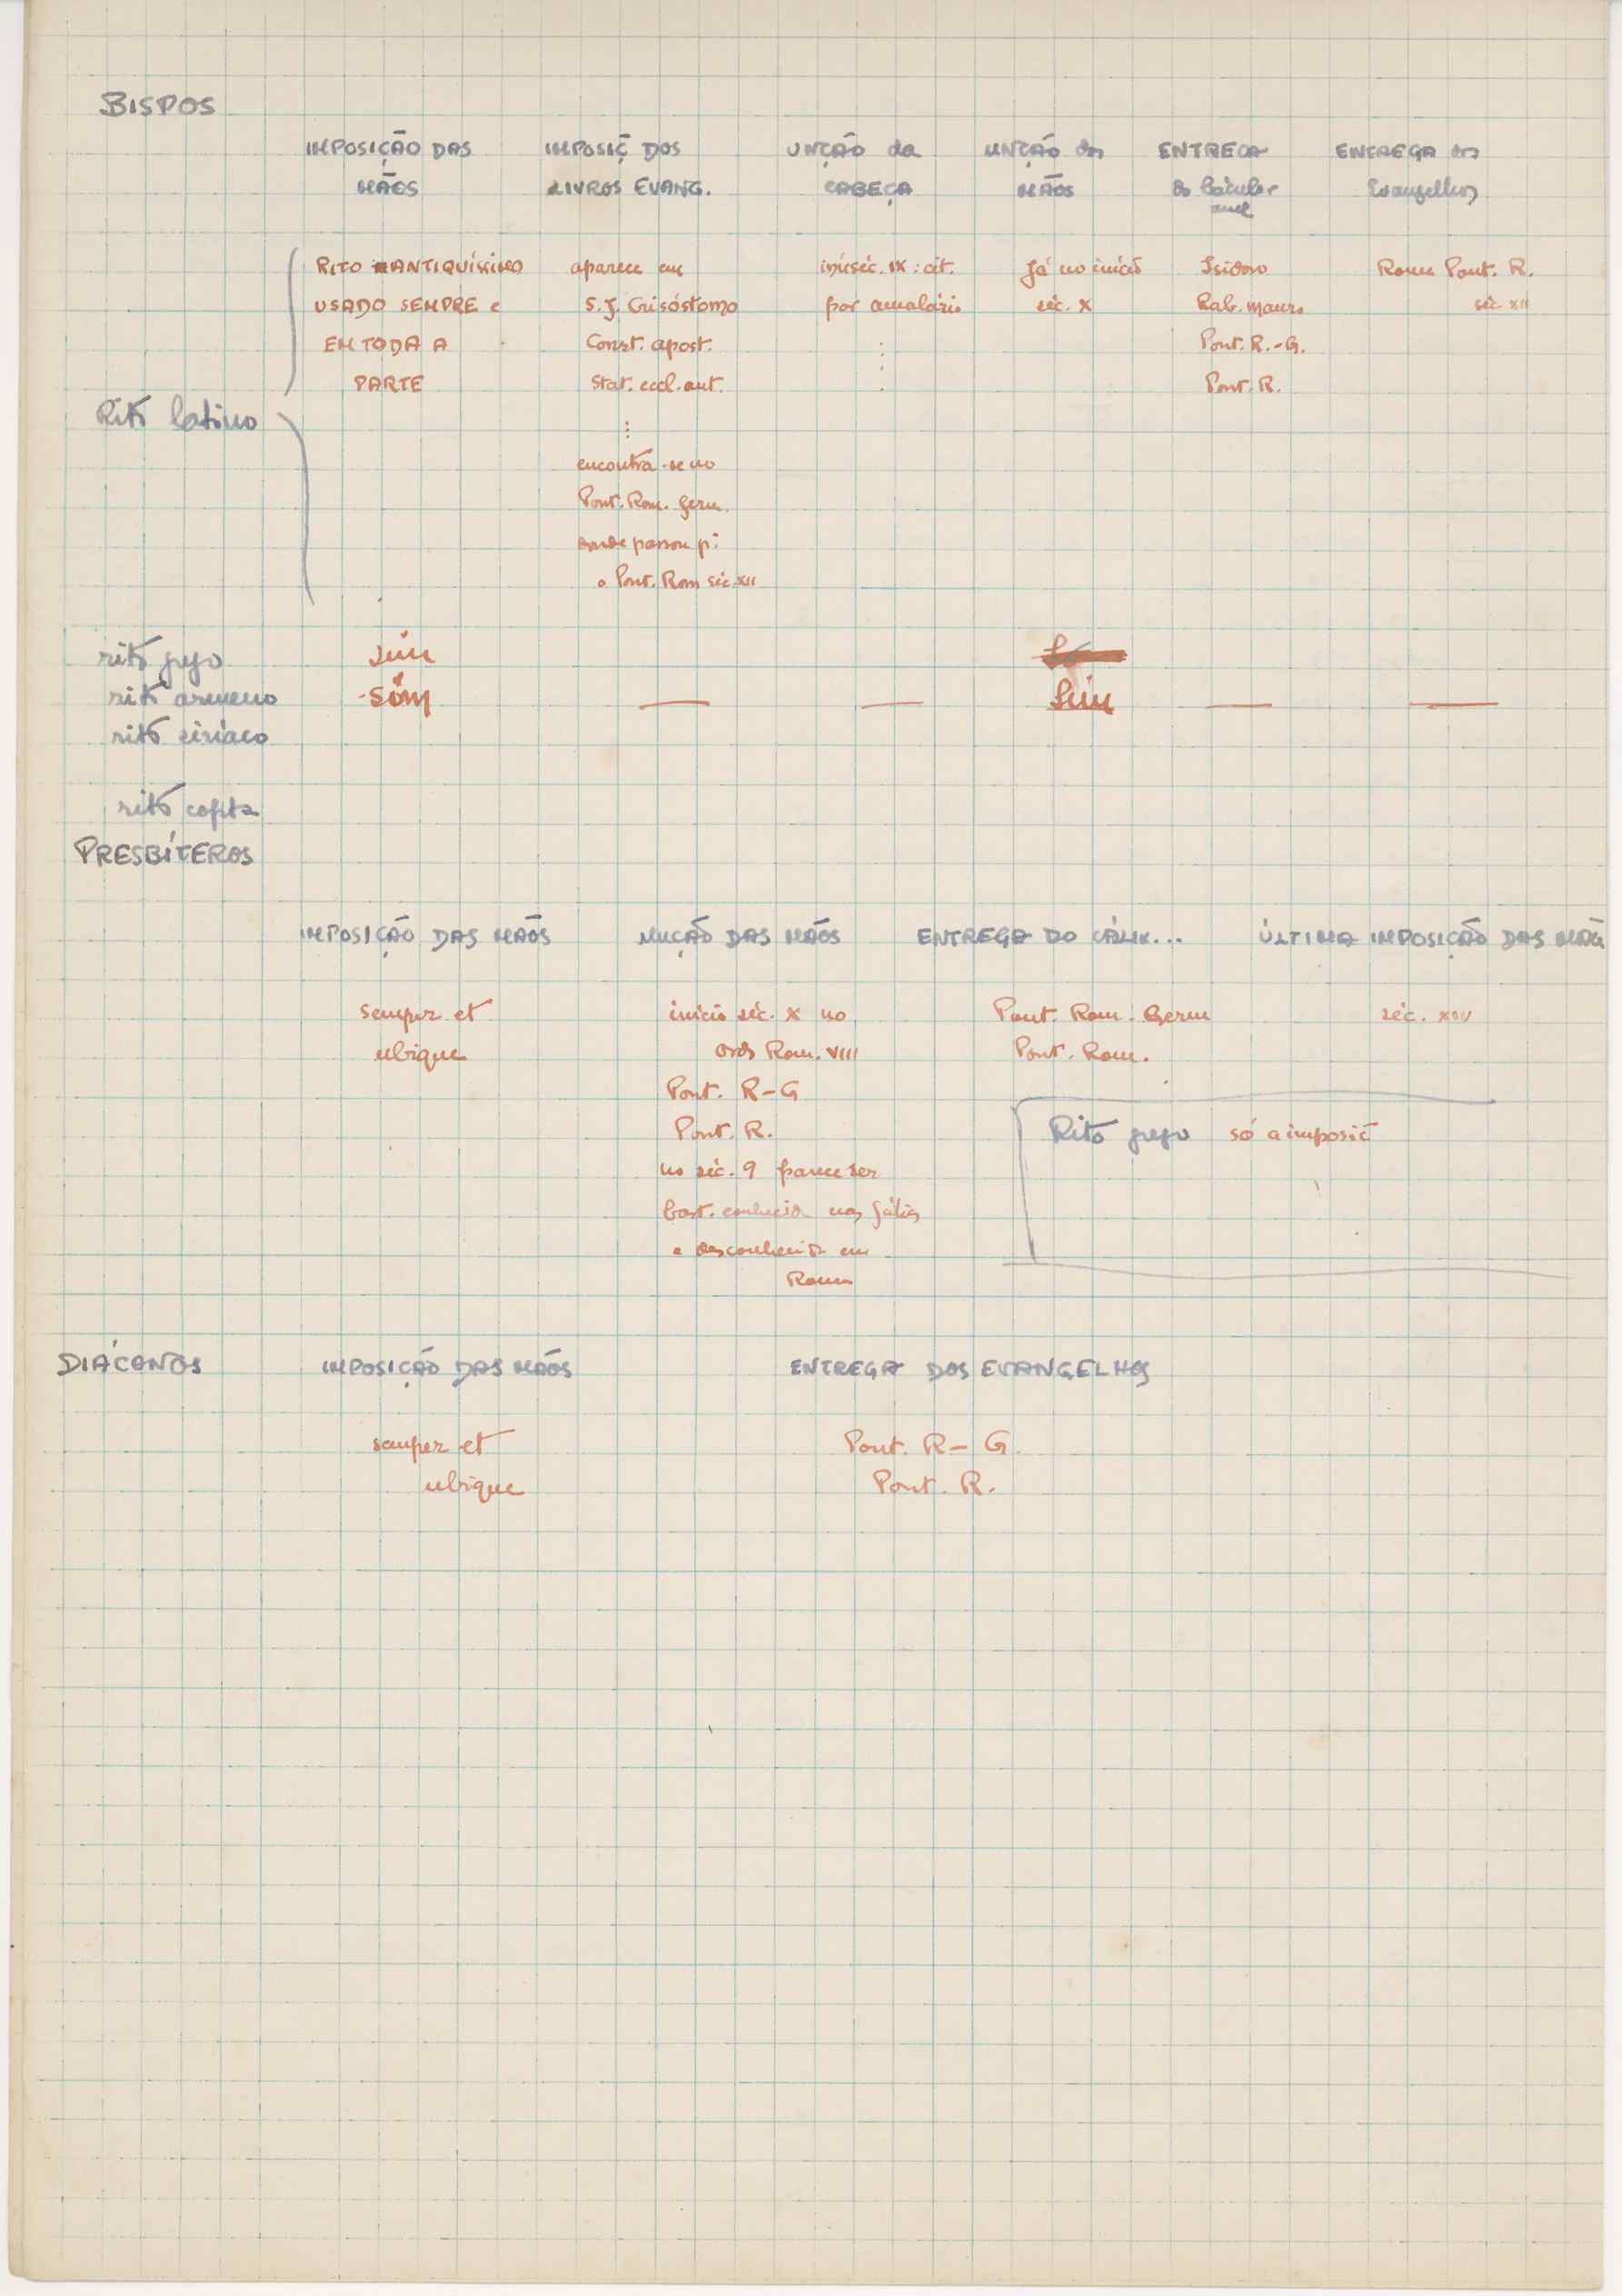 BISPOS
IMPOSIÇÃO DAS IMPOSIÇ DOS UNÇÃO da UNÇÃO das ENTREGA ENTREGA dos
MÃOS LIVROS EVANG. CABEÇA MÃOS do báculo e Evangelhos
anel
RITO ANTIQUÍSSIMO aparece em séc. IX: cit. Já no início Isidoro Pont. R.
USADO SEMPRE e S. J. Crisóstomo por amalário séc. X Rab. Mauro séc. XII
EM TODA A Const. apost. Pont. R.-G.
PARTE Stat. eccl. ant. Pont. R.
Rito latino
encontra-se no
Pont. Rom. Germ.
onde passou p:
o Pont. Rom séc. XII
rito grego sim
rito armeno sim — — Sim — —
rito siríaco
rito copta
PRESBÍTEROS
IMPOSIÇÃO DAS MÃOS UNÇÃO DAS MÃOS ENTREGA DO CÁLIX... ÚLTIMA IMPOSIÇÃO DAS MÃO
semper et início séc. X no Pont. Rom. Germ séc. XIV
ubique Ord Rom. VIII Pont. Rom.
Pont. R-G
Pont. R. Rito grego só a imposiç
no séc. 9 parece ser
bast. conhecida nas Gálias
e desconhecida em
Roma
DIÁCONOS IMPOSIÇÃO DAS MÃOS ENTREGA DOS EVANGELHOS
semper et Pont. R-G.
ubique Pont. R.